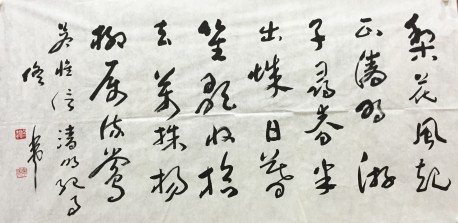 梨花風起
正清明游
子尋春半
出城日暮
笙歌收拾
去萬株楊
柳属流鶯
吳惟信清明即事